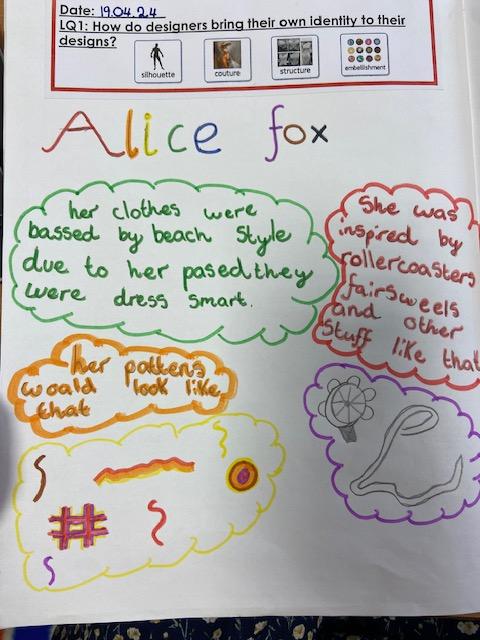 Date: 19.04.24
LQ1: How do designers bring their own identity to their
designs?
silhouette
couture
structure
embellishment
Alice fox
her clothes were
bassed by beach Style
due to her pased they
were dress smart.
She was
inspired by
rollercoasters
fairsweels
and other
Stuff like that
her pottens
woald look like
that